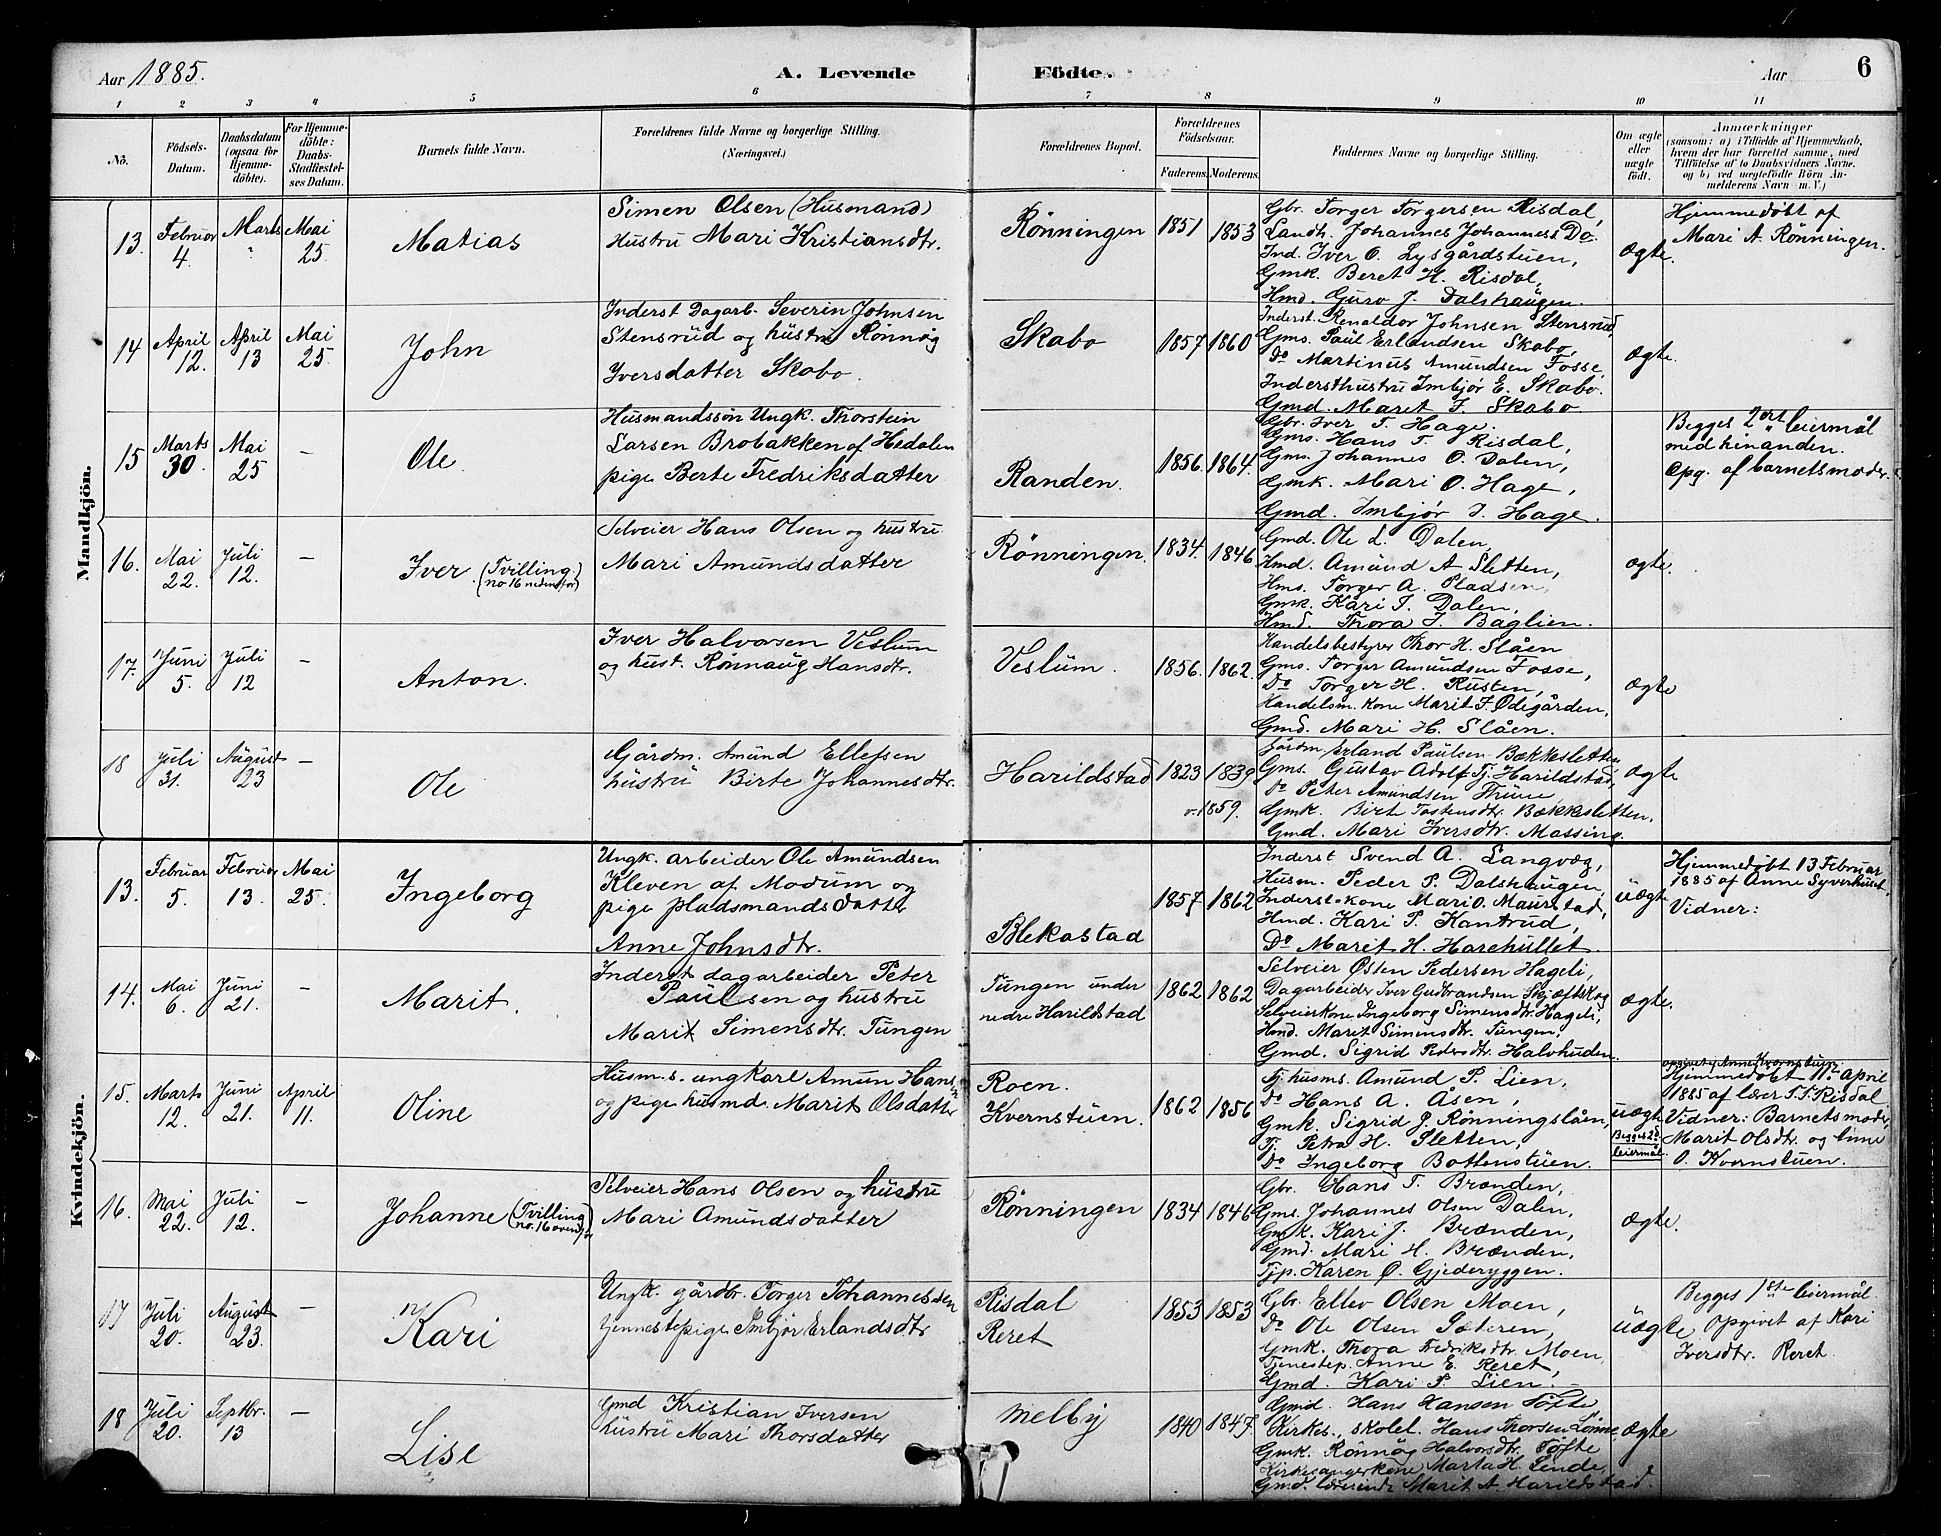 Aar 1885.
A. Levende Födte.
Aar
6
1 2 3 4 5 6 7 8 9 10 11
No.
Födsels-
Datum.
Daabsdatum
(ogsaa for
Hjemme-
döbte).
For Hjemme-
döbte:
Daabs-
Stadfæstel-
ses Datum.
Barnets fulde Navn.
Forældrenes fulde Navne og borgerlige Stilling.
(Næringsvei.)
Forældrenes Bopæl.
Forældrenes
Födselsaar.
Faderens. Moderens.
Faddernes Navne og borgerlige Stilling.
Om ægte
eller
uægte
födt.
Anmærkninger
(saasom: a) i Tilfælde af Hjemmedaab,
hvem der har forrettet samme, med
Tilföielse af to Daabsvidners Navne.
og b) ved uægtefödte Börn An-
melderens Navn m. V.)
Mandkjön.
13. Februar 4. Marts " Mai 25
Matias
Simen Olsen (Husmand)
Hustru Mari Kristiansdtr.
Rønningen
1851 1853
Gbr. Torger Torgersen Risdal,
Landh. Johannes Johanness Do.
Ind. Iver O. Lysgårdstuen,
Gmk. Beret H. Risdal,
Hmd. Guro J. Dalshaugen.
Ægte.
Hjemmedøbt af
Mari A. Rønningen.
14 April 12. April 13 Mai 25.
John
Inderst Dagarb. Severin Johnsen
Stensrud og hüstru Rønnøg
Iversdatter Skabo.
Skabo
1857 1860
Inderst. Renaldor Johnsen Stensrud,
Gms. Paul Erlandsen Skabo,
Do Martinus Amundsen Fosse,
Indersthustru Imbjør E. Skabo.
Gmd. Maret I. Skabo
Ægte.
15 Marts 30. Mai 25 —
Ole.
Husmandssøn Ungk. Thorstein
Larsen Brobakken af Hedalen
pige Berte Fredriksdatter
Randen.
1856. 1864.
Gbr. Iver T. Hage.
Gms. Hans T. Risdal,
Gms. Johannes O. Dalen,
Gmk. Mari O. Hage,
Gmd. Imbjør I. Hage.
Begges 2det leiermål
med hinanden.
Opg. af barnets moder.
16. Mai 22. Juli 12. —
Iver (Tvilling
no 16 nedenfor)
Selveier Hans Olsen og hustru
Mari Amundsdatter
Rønningen.
1834. 1846
Gmd. Ole L. Dalen,
Hmd. Amund A Sletten,
Hms. Torger A. Pladsen,
Gmk. Kari I. Dalen,
Hmd. Thora J. Baglien.
Ægte.
17. Juni 5. Juli 12 —
Anton.
Iver Halvorsen Veslum
og hust. Rønnaug Hansdtr.
Veslum.
1856. 1862.
Handelsbestyrer Thor H. Slåen
Gms. Torger Amundsen Fosse,
Do Torger H. Rusten,
Handelsm. kone Marit F. Ødegården,
Gmd. Mari H. Slåen.
Ægte
18 Juli 31. August 23 —
Ole
Gårdm. Amund Ellefsen
hüstru Birte Johannesdtr.
Harildstad
1823 1839
v. 1859.
Gårdm Erland Paulsen Bækkesletten
Gms. Gustav Adolf Tj. Harildstad,
Do Peter Amundsen Thune
Gmk. Birte Tostensdtr. Bækkesletten,
Gmd. Mari Iversdtr. Massing.
Ægte
Kvindekjön.
13. Februar 5. Februar 13. Mai 25.
Ingeborg
Ungk. arbeider Ole Amundsen
Kleven af Modum og
pige pladsmandsdatter
Anne Johnsdtr.
Blekastad
1857 1862
Inderst Svend A. Langvæg,
Husm. Peder P. Dalshaugen,
Inderstkone Mari O. Maurstad,
Hmd. Kari P. Kantrud,
Do Marit H. Harehullet.
uægte
Hjemmedøbt 13 Februar
1885 af Anne Syverhuset.
Vidner:
14. Mai 6. Juni 21. —
Marit.
Inderst dagarbeider Peter
Paulsen og hustru
Marit Simensdtr. Tungen
Tungen under
nedre Harildstad
1862 1862
Selveier Østen Pedersen Hageli,
Dagarbeider Iver Gudbrandsen Skjæftskog
Selveierkone Ingeborg Simensdtr. Hageli,
Hmd. Marit Simensdtr. Tungen,
Gmd. Sigrid Pedersdtr. Halvhuden.
Ægte.
15. Marts 12. Juni 21. April 11.
Oline
Husm.s. ungkarl Amun Hans.
og pige husmd. Marit Olsdatter
Roen.
Kvernstuen.
1862 1856
Tj. husms. Amund P. Lien,
Do Hans A. Åsen,
Gmk. Sigrid J. Rønningslåen,
Tj. Petra H. Sletten,
Do Ingeborg Bottenstuen.
uægte
Begges 2d
leiermål.
Hjemmedøbt 11te April
1885 af lærer T. T. Risdal
Vidner: Barnets moder
Marit Olsdtr. og
O. Kvernstuen.
16. Mai 22. Juli 12. —
Johanne (Tvilling
no. 16 ovenfor)
Selveier Hans Olsen og hustru
Mari Amundsdatter
Rønningen
1834 1846
Gbr. Hans T. Brænden,
Gms. Johannes Olsen Dalen,
Gmk. Kari J. Brænden,
Gmd. Mari H. Brænden,
Tjp. Karen Ø. Gjederyggen.
Ægte.
17 Juli 20. August 23. —
Kari
Ungk. gårdbr. Torger Johannessen
tjenestepige Imbjør Erlandsdtr
Risdal
Reret
1853 1853
Gbr. Ellev Olsen Moen,
Do Ole Olsen Sæteren,
Gmk. Thora Fredriksdtr. Moen,
Tjenestep. Anne E. Reret,
Gmd. Kari P. Lien.
uægte
Begges 1ste leiermål.
Opgivet af Kari
Iversdtr. Reret.
18 Juli 20. Septbr. 13 —
Lise
Gmd Kristian Iversen
hustru Mari Thorsdatter
Melby
1840 1847.
Gmd. Hans Hansen Tofte
Kirkes., skolel. Hans Thorsen Lønne
Gmk. Rønnøg Halvorsdtr. Tofte
Kirkesangerkone Marta H. Sende
Gmd. lærerinde Marit A. Harildstad.
Ægte